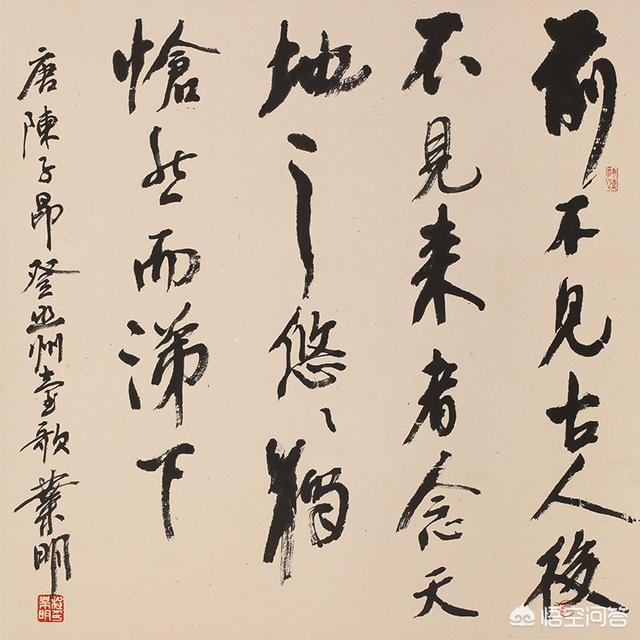 前不见古人後
不見来者念天
地之悠〻獨
愴然而涕下
唐陳子昂登幽州臺歌 業明
悟空问答